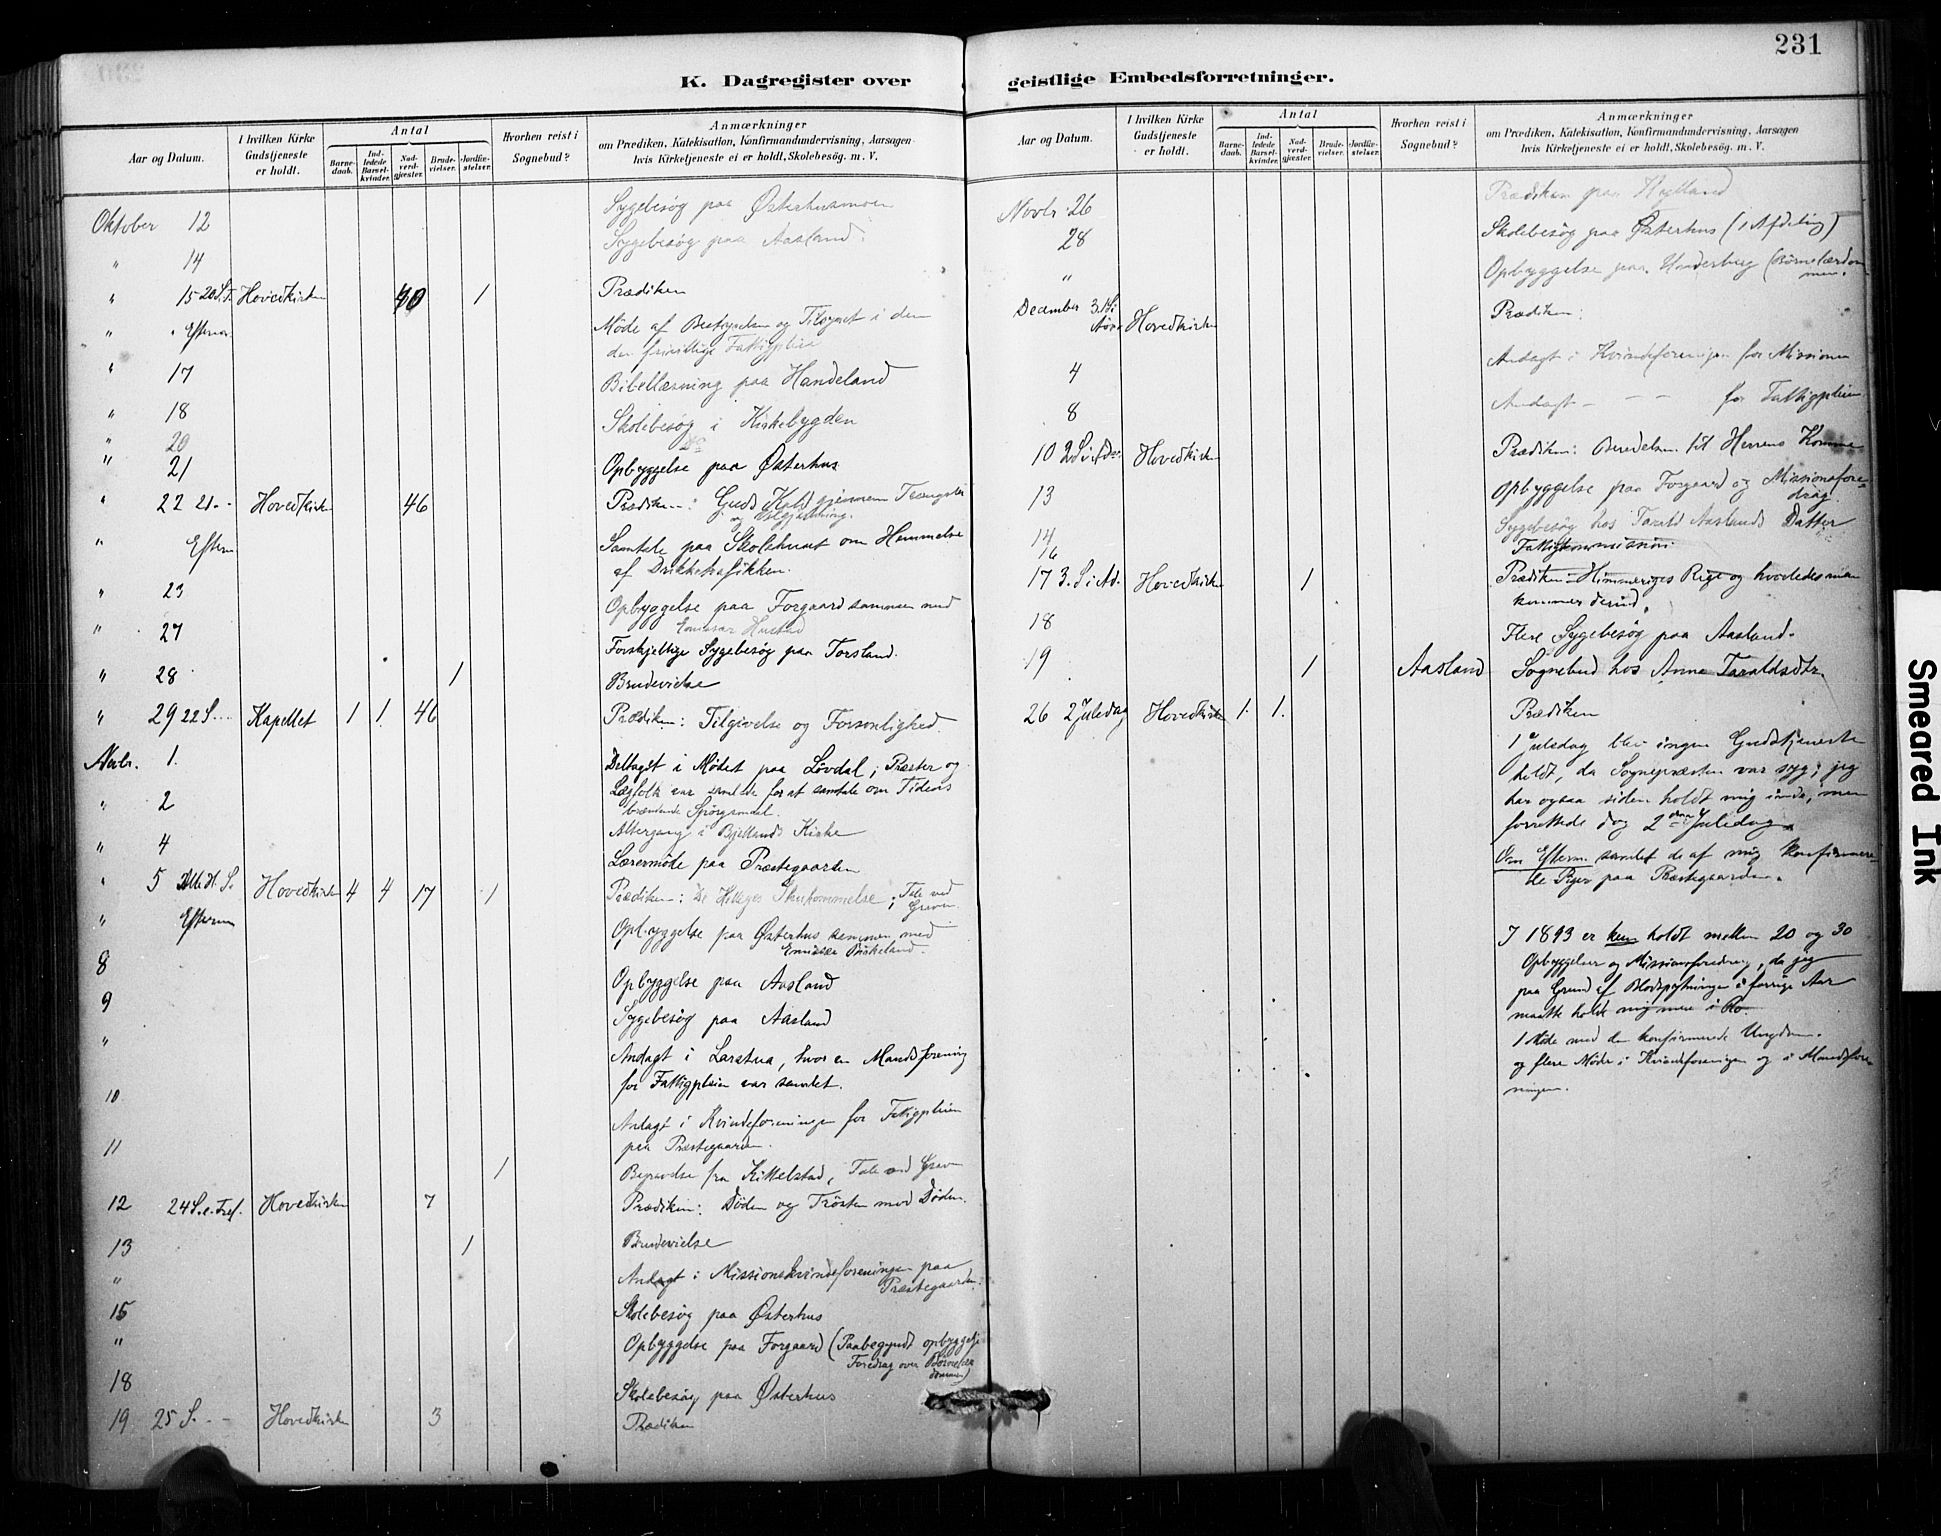 231
K. Dagregister over geistlige Embedsforretninger.
Aar og Datum.
I hvilken Kirke Gudstjeneste er holdt.
Antal
Barne-daab.
Ind-ledede Barsel-kvinder.
Nad-verd-gjæster.
Brude-vielser.
Jordfæ-stelser.
Hvorhen reist i Sognebud?
Anmærkninger
om Prædiken, Katekisation, Konfirmandundervisning, Aarsagen
hvis Kirketjeneste ei er holdt, Skolebesög. m. V.
Oktober 12 Sygebesøg paa Østerhusmoen
" 14 Sygebesøg paa Aasland.
" 15 20 S.T. Hovedkirken 40 1 Prædiken
" " Efterm. Møde af Bestyrelsen og Tilsynet i den
den frivillige Fattigpleie
" 17 Bibellæsning paa Handeland
" 18 Skolebesøg i Kirkebygden
" 20 Do
" 21 Opbyggelse paa Østerhus
" 22 21 - - Hovedkirken 46 Prædiken: Guds Kald gjennem Trængsler
og Velgjørning.
" Efterm Samtale paa Skolehuset om Hemmelse
af Drikketrafikken.
" 23 Opbyggelse paa Forgaard sammen med
Emissær Hustad
" 27 Forskjellige Sygebesøg paa Torsland.
" 28 1 Brudevielse
" 29 22 S. - - Kapellet 1 1. 46 Prædiken: Tilgivelse og Forsonlighed.
Novbr. 1. Deltaget i Mødet paa Løvdal; Præster og
" 2 Lægfolk var samlede for at samtale om Tidens
brændende Spørgsmaal.
Altergang i Bjellands Kirke
" 4 Lærermøde paa Præstegaarden
" 5 Alle H. S. Hovedkirken 4 4 17 1 Prædiken: De Helliges Ihukommelse; Tale ved
Graven
" Efterm Opbyggelse paa Østerhus sammen med
Emissær Birkeland.
8 Opbyggelse paa Aasland
9 Sygebesøg paa Aasland
" Andagt i Larstua, hvor en Mandsforening
for Fattigpleien var samlet.
10 Andagt i Kvindeforeningen for Fattigpleien
paa Præstegaarden.
11 1 Begravelse fra Kittelstad, Tale ved Graven
12 24 S. e. Tref. Hovedkirken 7 Prædiken: Døden og Trøsten mod Døden.
13 1 Brudevielse
" Andagt i Missionskvindeforeningen paa
Præstegaarden.
15 Skolebesøg paa Østerhus
" Opbyggelse paa Forgaard (Paabegyndt opbyggelse
Foredrag over Børnelær
dommen)
18 Skolebesøg paa Østerhus
19 25 S. - - Hovedkirken 3 Prædiken
Aar og Datum.
I hvilken Kirke Gudstjeneste er holdt.
Antal
Barne-daab.
Ind-ledede Barsel-kvinder.
Nad-verd-gjæster.
Brude-vielser.
Jordfæ-stelser.
Hvorhen reist i Sognebud?
Anmærkninger
om Prædiken, Katekisation, Konfirmandundervisning, Aarsagen
hvis Kirketjeneste ei er holdt, Skolebesög. m. V.
Novbr. 26 Prædiken paa
28 Skolebesøg paa Østerhus (1 Afdeling)
" Opbyggelse paa (Børnelærdom
men.
December 3. 1 S. i Adv. Hovedkirken Prædiken:
4 Andagt i Kvindeforeningen for Missionen
8 Andagt - - - for Fattigpleien
10 2 S. i Adv. Hovedkirken Prædiken: Beredelsen til Herrens Komme
13 Opbyggelse paa Forgaard og Missionsfore-
drag.
14 Sygebesøg hos Tarald Aaslands Datter
16 Fattigkommission
17 3. S. i Ad. Hovedkirken 1 Prædiken: Himmeriges Rige og hvorledes man
kommer derind.
18 Flere Sygebesøg paa Aasland.
19 1 Aasland Sognebud hos Anna Taraldsdtr.
26 2 Juledag Hovedkirken 1. 1. Prædiken
1 Juledag blev ingen Gudstjeneste
holdt, da Sognepræsten var syg; jeg
har ogsaa siden holdt mig inde, men
forrettede dog 2den Juledag.
Om Efterm. samlet de af mig konfirmere-
de Piger paa Præstegaarden.
I 1893 er kun holdt mellem 20 og 30
Opbyggelser og Missionsforedrag, da jeg
paa Grund af Blodspytningen i forrige Aar
maatte holde mig mere i Ro.
1 Møde med den konfirmerede Ungdom.
og flere Møder i Kvindeforeningen og i Mandsfore-
ningen.
Smeared Ink